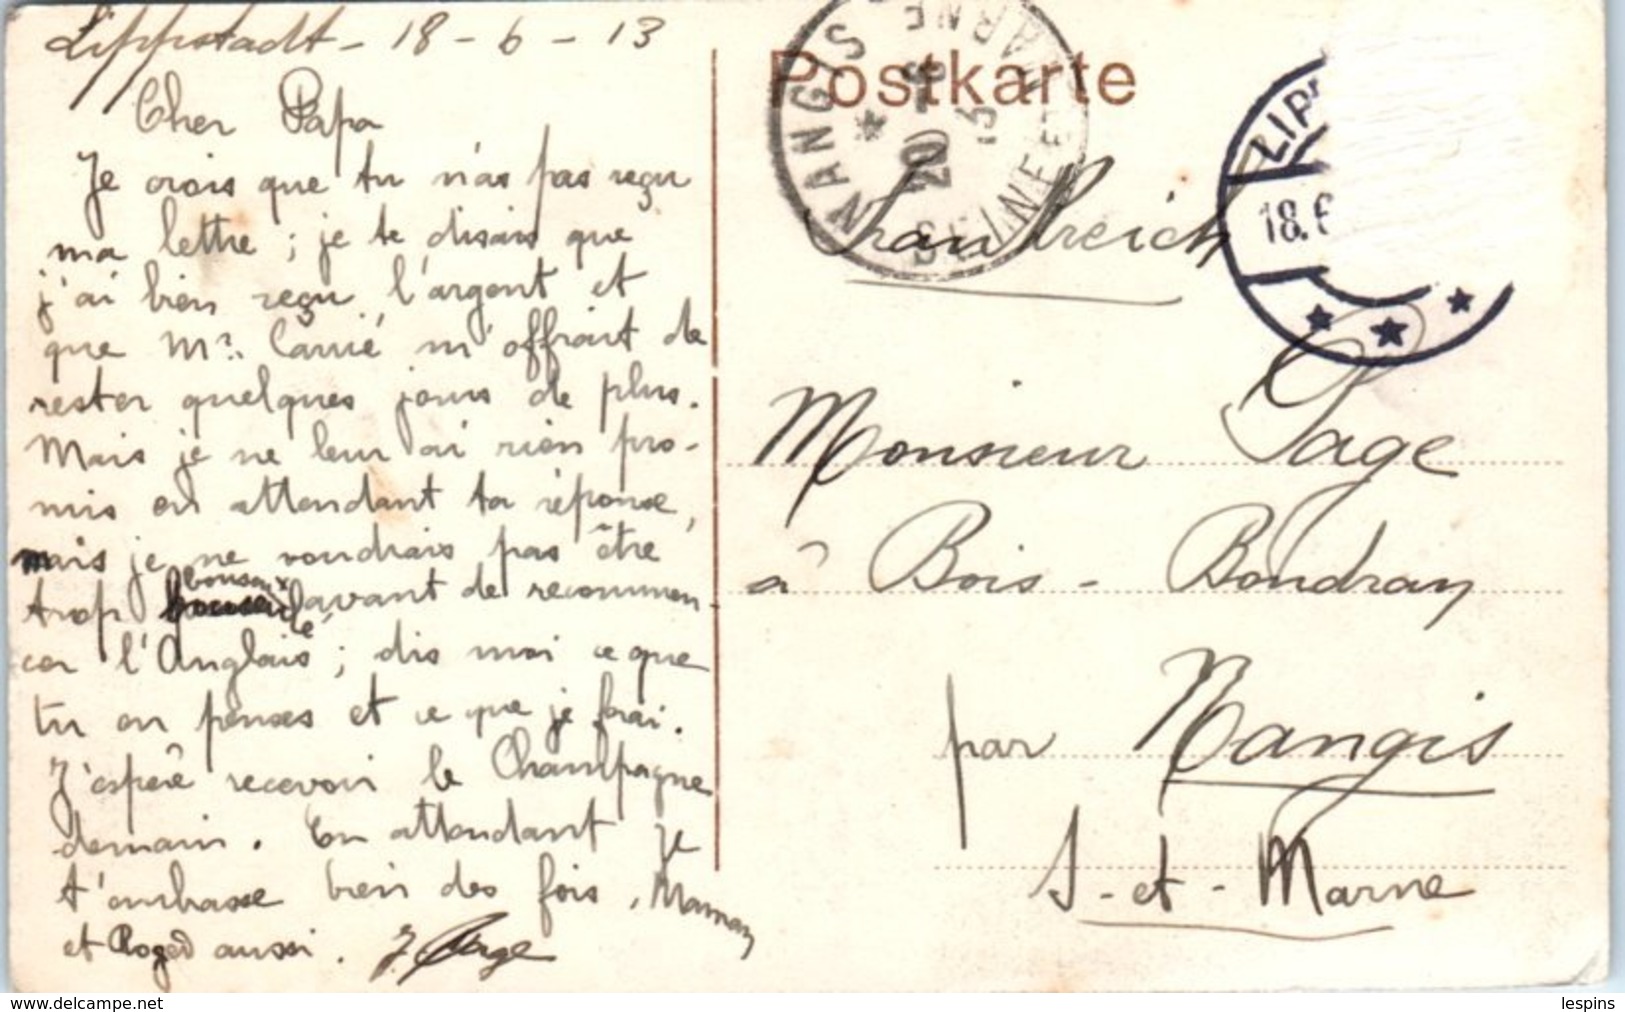 Lippstadt - 18 - 6 - 13
Cher Papa
Je crois que tu n'as pas reçu
ma lettre ; je te disais que
j'ai bien reçu l'argent et
que Mr. Carrié m'offrait de
rester quelques jours de plus.
Mais je ne leur ai rien pro-
mis en attendant ta réponse,
mais je ne voudrais pas être
trop bousculé avant de recommen-
cer l'Anglais ; dis moi ce que
tu en penses et ce que je ferai.
J'espère recevoir le Champagne
demain. En attendant je
t'embrasse bien des fois, Maman
et Roger aussi. J. Page
Postkarte
NANGIS
* 20 - 6 13
SEINE ET MARNE
LIPP
18.6
Frankreich
Monsieur Page
à Bois - Boudran
par Nangis
S - et - Marne
www.delcampe.net
lespins